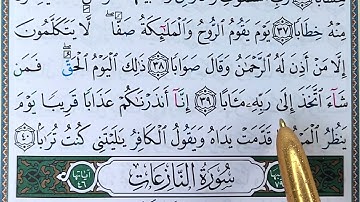 مِنْهُ خِطَابًا ﴿٣٧﴾ يَوْمَ يَقُومُ الرُّوحُ وَالْمَلَٰٓئِكَةُ صَفًّا ۖ لَّا يَتَكَلَّمُونَ
إِلَّا مَنْ أَذِنَ لَهُ الرَّحْمَٰنُ وَقَالَ صَوَابًا ﴿٣٨﴾ ذَٰلِكَ الْيَوْمُ الْحَقُّ ۖ فَمَن
شَآءَ اتَّخَذَ إِلَىٰ رَبِّهِۦ مَـَٔابًا ﴿٣٩﴾ إِنَّآ أَنذَرْنَٰكُمْ عَذَابًا قَرِيبًا يَوْمَ
يَنظُرُ الْمَرْءُ مَا قَدَّمَتْ يَدَاهُ وَيَقُولُ الْكَافِرُ يَٰلَيْتَنِي كُنتُ تُرَٰبًۢا ﴿٤٠﴾
سُورَةُ النَّازِعَاتِ
آيَاتُهَا ٤٦